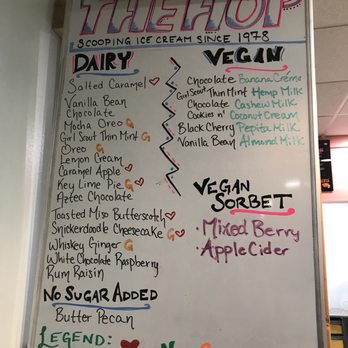 THE HOP
SCOOPING ICE CREAM SINCE 1978
DAIRY
Salted Caramel
Vanilla Bean
Chocolate
Mocha Oreo G
Girl Scout Thin Mint G
Oreo G
Lemon Cream
Caramel Apple
Key Lime Pie G
Aztec Chocolate
Toasted Miso Butterscotch
Snickerdoodle Cheesecake G
Whiskey Ginger G
White Chocolate Raspberry
Rum Raisin
NO SUGAR ADDED
Butter Pecan
VEGAN
Chocolate Banana Créme
Girl Scout Thin Mint Hemp Milk
Chocolate Cashew Milk
Cookies n' Coconut Cream
Black Cherry Pepita Milk
Vanilla Bean Almond Milk
VEGAN
SORBET
• Mixed Berry
• Apple Cider
LEGEND: